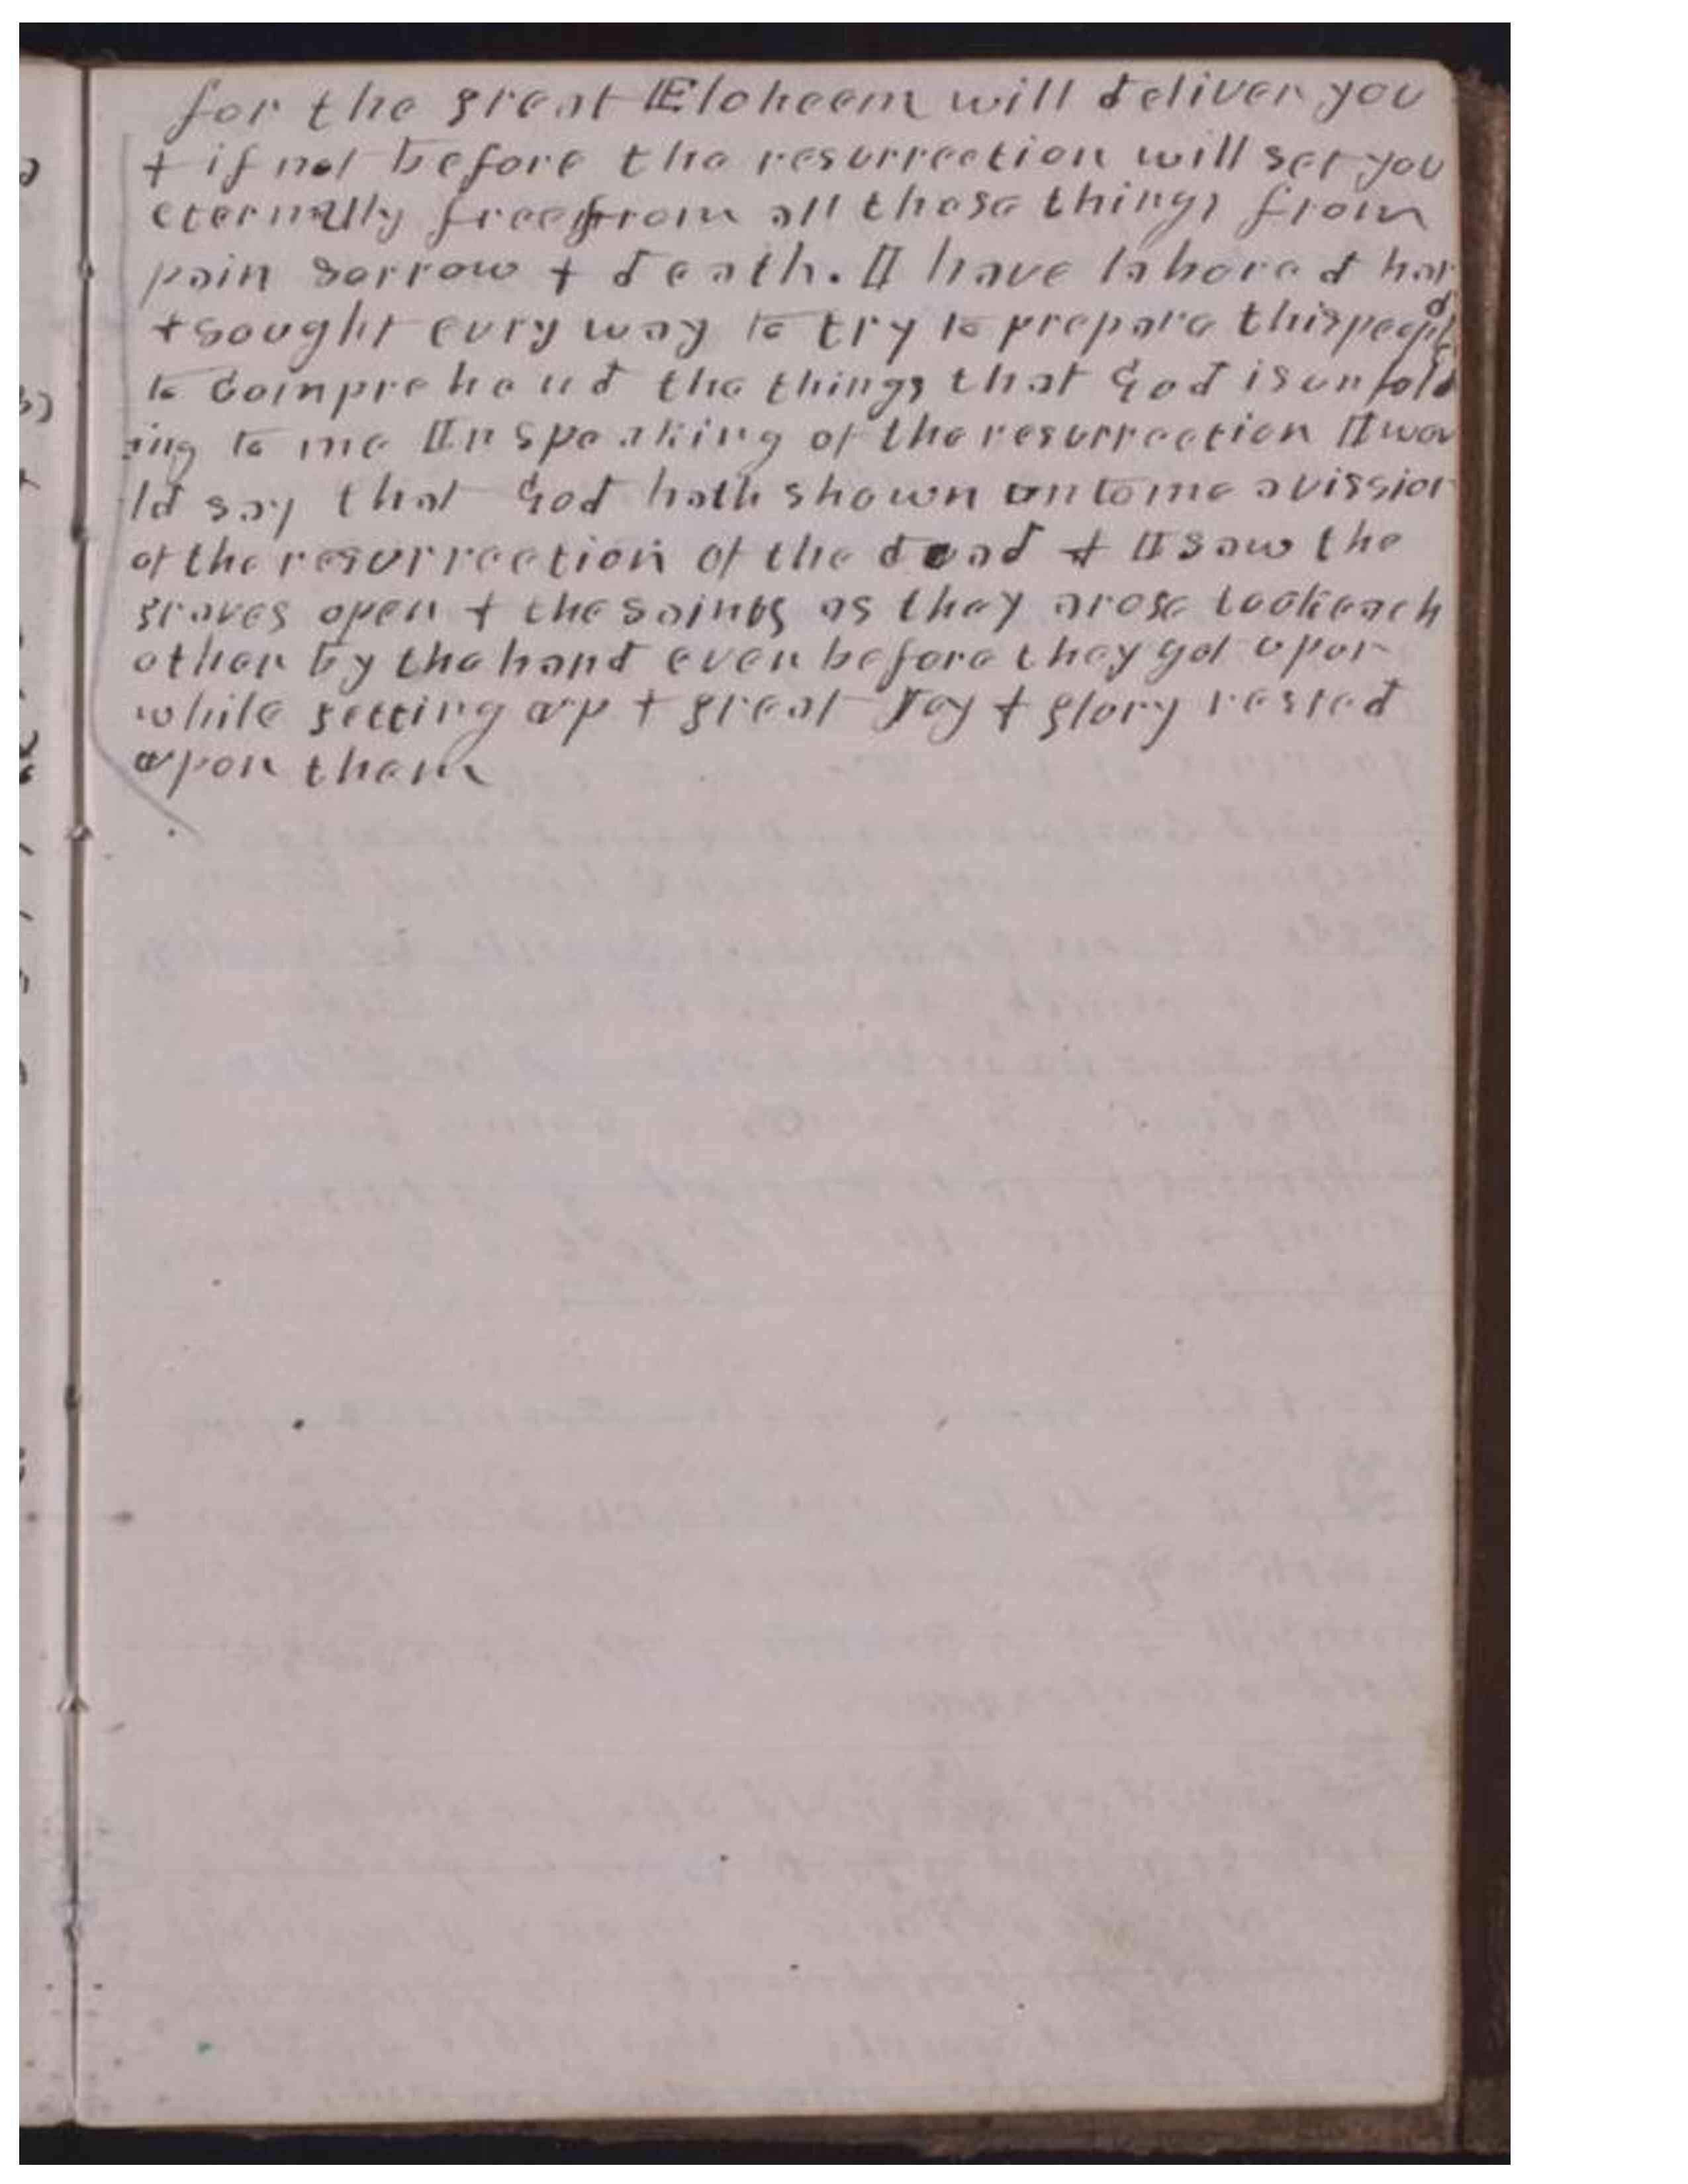 for the great Eloheem will deliver you
+ if not before the resurrection will set you
eternally free from all these things from
pain sorrow + death. I have labored hard
+ sought evry way to try to prepare this people
to comprehend the things that God is unfold
ing to me In speaking of the resurrection I wou
ld say that God hath shown unto me a vission
of the resurrection of the dead + I saw the
graves open + the saints as they arose took each
other by the hand even before they got up or
while setting up + great Joy + glory rested
upon them